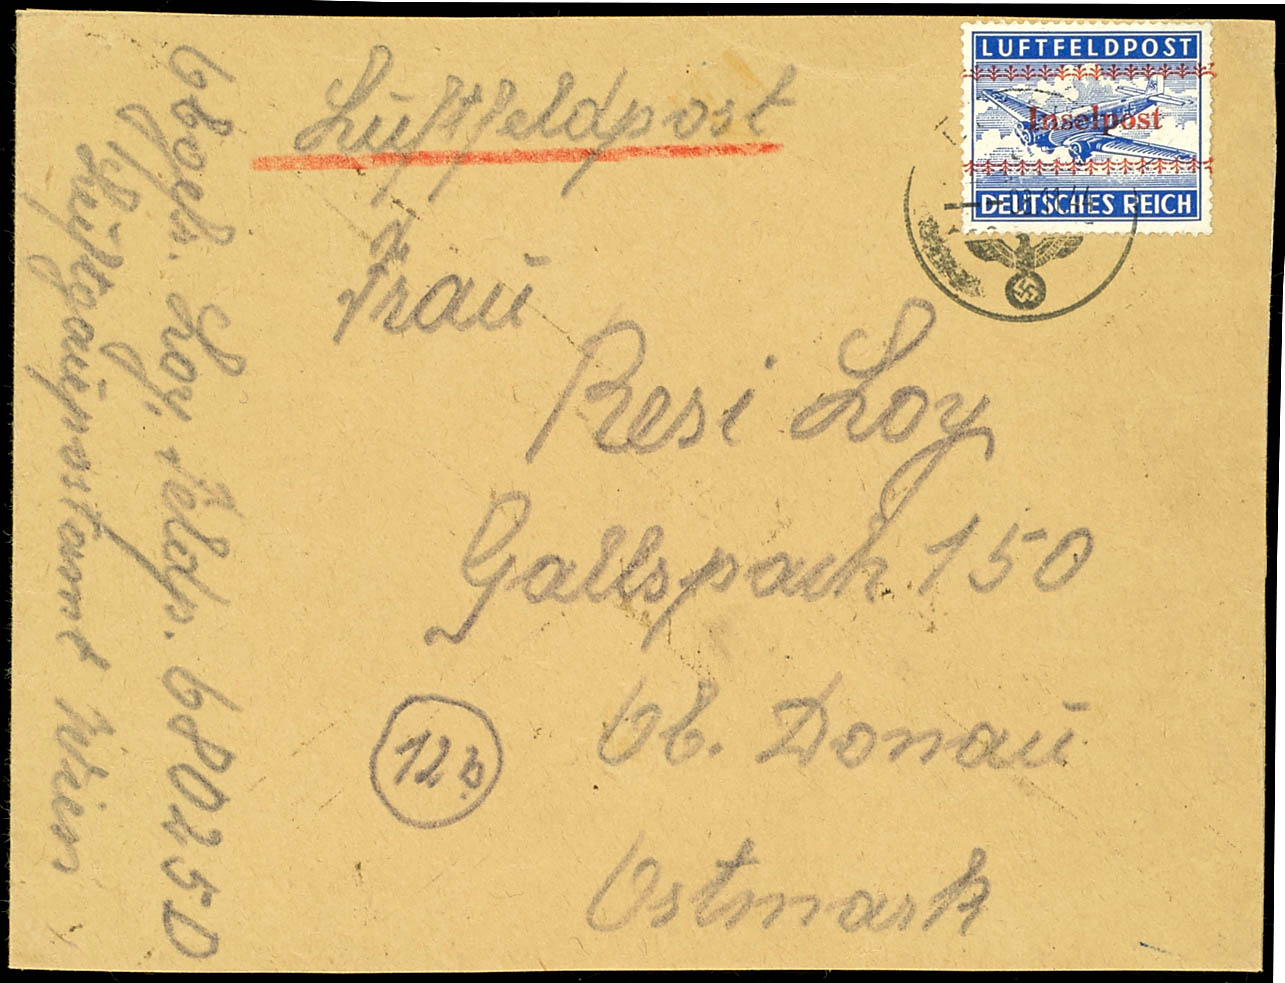 Luftfeldpost
LUFTFELDPOST
Inselpost
DEUTSCHES REICH
02.11.44
Frau
Resi Loy
Gallspach 150
Ob. Donau
Ostmark
12b
Obgefr. Loy, Feldp. 68025D
Luftgaupostamt Wien